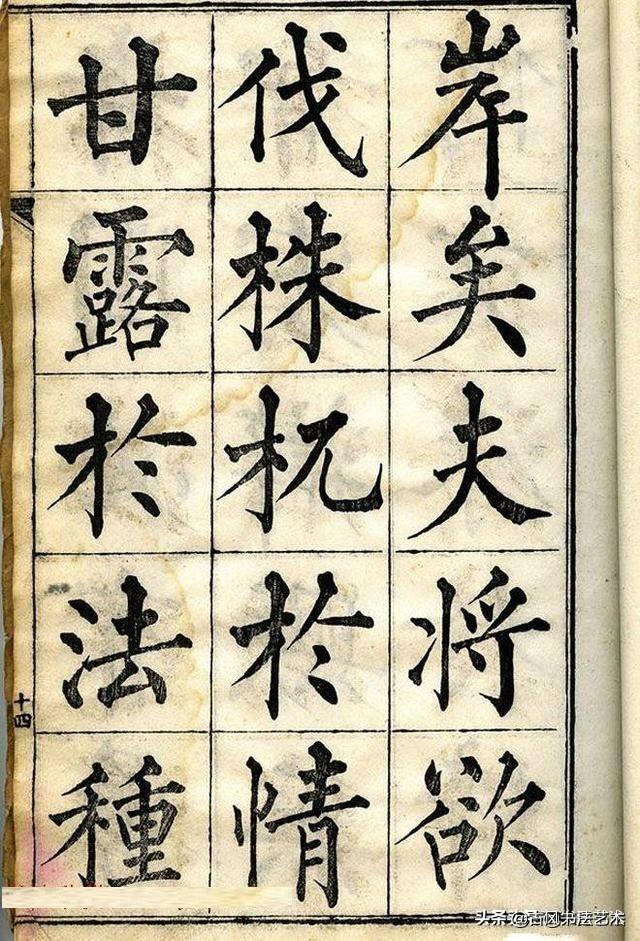 岸矣夫将欲
伐株杌於情
甘露於法種
十四
头条 @古风书法艺术